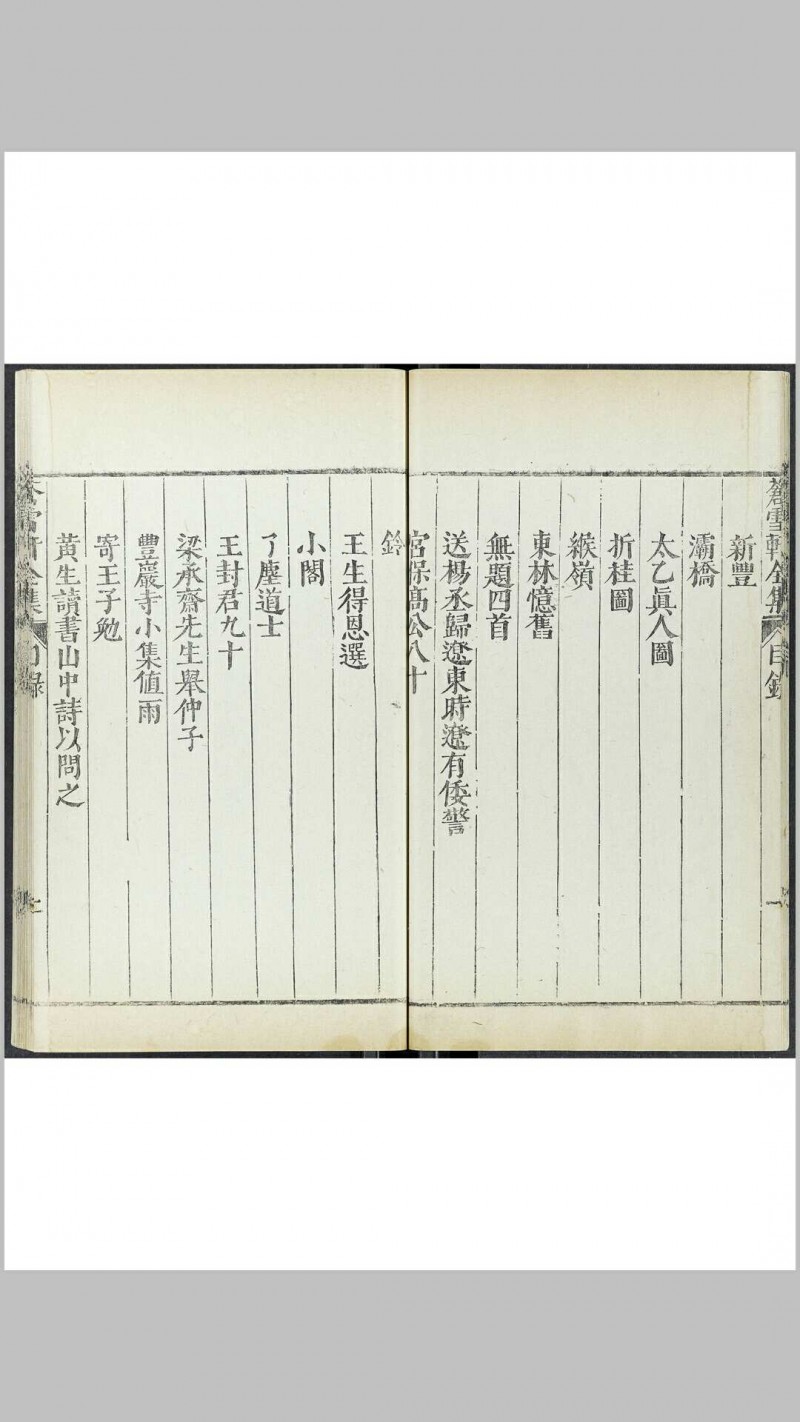 蒼雪軒全集
目錄
新豐
灞橋
太乙眞人圖
折桂圖
緱嶺
東林憶舊
無題四首
送楊丞歸遼東時遼有倭警
宮保高公八十
鈴
王生得恩選
小閣
了塵道士
王封君九十
梁承齋先生舉仲子
豐巖寺小集値雨
寄王子勉
黃生讀書山中詩以問之
蒼雪軒全集
目錄